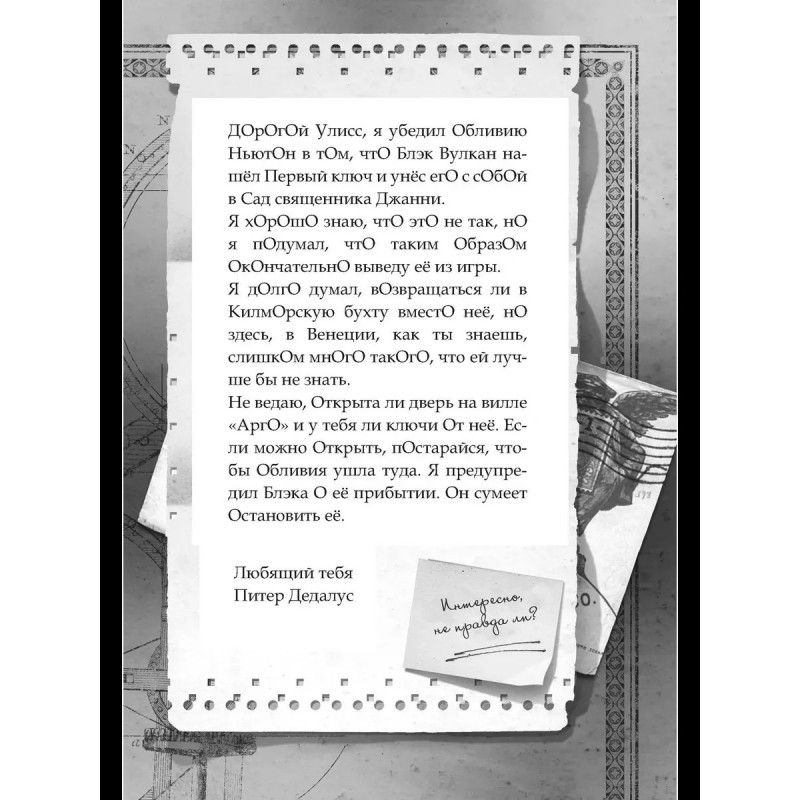 ДОрОгОй Улисс, я убедил Обливию
НьютОн в тОм, чтО Блэк Вулкан на-
шёл Первый ключ и унёс егО с сОбОй
в Сад священника Джанни.
Я хОрОшО знаю, чтО этО не так, нО
я пОдумал, чтО таким ОбразОм
ОкОнчательнО выведу её из игры.
Я дОлгО думал, вОзвращаться ли в
КилмОрскую бухту вместО неё, нО
здесь, в Венеции, как ты знаешь,
слишкОм мнОгО такОгО, что ей луч-
ше бы не знать.
Не ведаю, Открыта ли дверь на вилле
«АргО» и у тебя ли ключи От неё. Ес-
ли можно Открыть, пОстарайся, что-
бы Обливия ушла туда. Я предупре-
дил Блэка О её прибытии. Он сумеет
Остановить её.
Любящий тебя
Питер Дедалус
Интересно,
не правда ли?